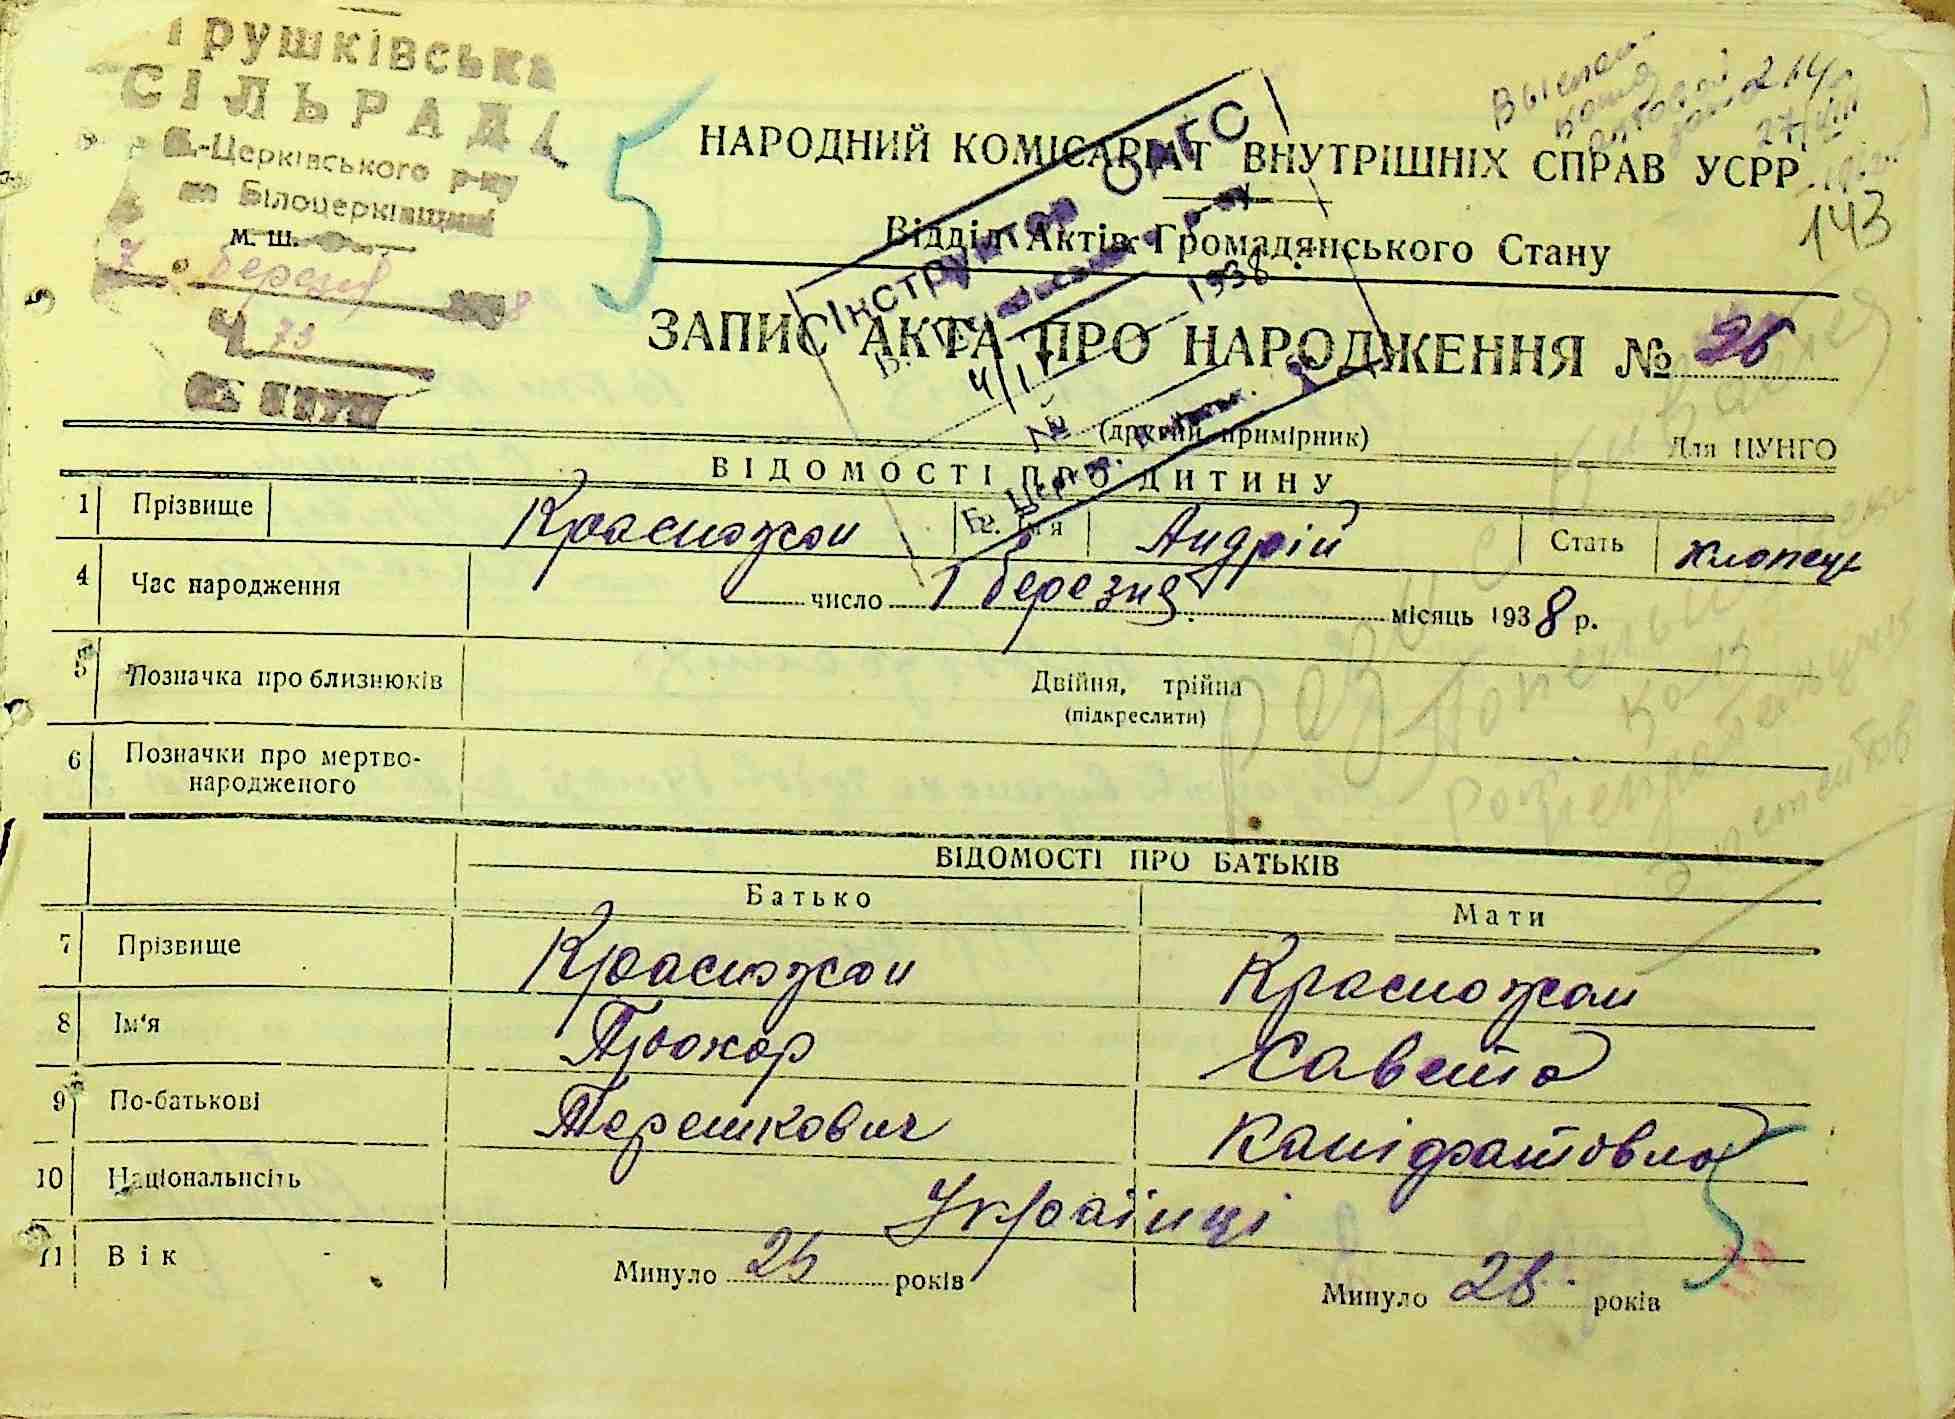 Грушківська
СІЛЬРАДА
Б.-Церківського р-ну
на Білоцерківщині
м. ш.
7 березня 8
Ч. 73
5
143
НАРОДНИЙ КОМІСАРІАТ ВНУТРІШНІХ СПРАВ УСРР
Відділ Актів Громадянського Стану
Інструктор ОАГС
1938
№
ЗАПИС АКТА ПРО НАРОДЖЕННЯ № 26
(другий примірник) Для ЦУНГО
ВІДОМОСТІ ПРО ДИТИНУ
1 Прізвище Красножон Ім'я Андрій Стать хлопець
4 Час народження число 1 березня місяць 1938 р.
5 Позначка про близнюків Двійня, трійна
(підкреслити)
6 Позначки про мертво-
народженого
ВІДОМОСТІ ПРО БАТЬКІВ
Батько Мати
7 Прізвище Красножон Красножон
8 Ім'я Прохор Савета
9 По-батькові Терешкович Каніфатовна
10 Національність Українці
11 Вік Минуло 25 років Минуло 28 років